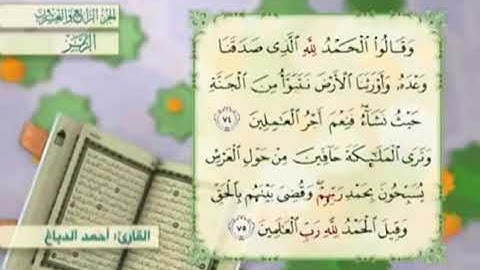 الجزء الرابع والعشرون
الزمر
وَقَالُوا۟ ٱلْحَمْدُ لِلَّهِ ٱلَّذِى صَدَقَنَا
وَعْدَهُۥ وَأَوْرَثَنَا ٱلْأَرْضَ نَتَبَوَّأُ مِنَ ٱلْجَنَّةِ
حَيْثُ نَشَآءُ ۖ فَنِعْمَ أَجْرُ ٱلْعَـٰمِلِينَ ٧٤
وَتَرَى ٱلْمَلَـٰٓئِكَةَ حَآفِّينَ مِنْ حَوْلِ ٱلْعَرْشِ
يُسَبِّحُونَ بِحَمْدِ رَبِّهِمْ ۖ وَقُضِىَ بَيْنَهُم بِٱلْحَقِّ
وَقِيلَ ٱلْحَمْدُ لِلَّهِ رَبِّ ٱلْعَـٰلَمِينَ ٧٥
القارئ: أحمد الدباغ